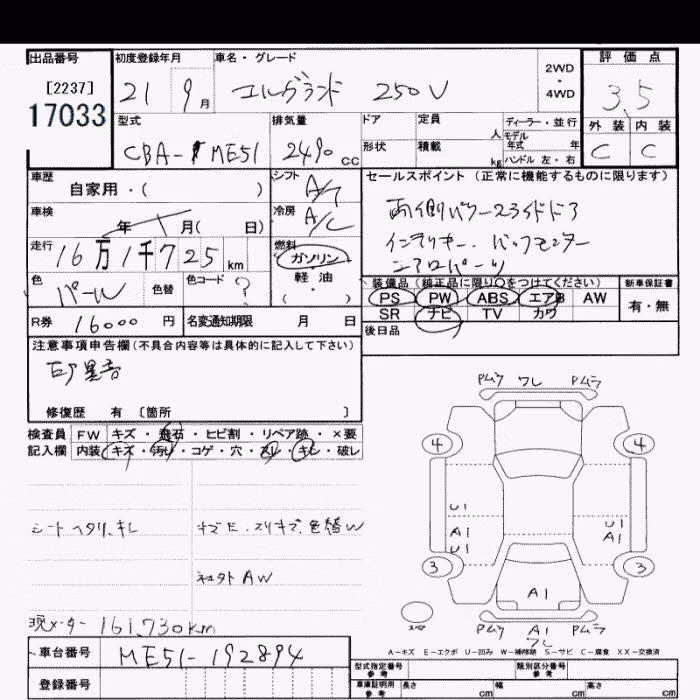 出品番号
[2237]
17033
初度登録年月
21 9月
車名・グレード
エルグランド 250V
2WD・4WD
評価点
3.5
外装 内装
C C
型式
CBA-ME51
排気量
2490cc
ドア
形状
定員 人
積載 kg
ディーラー・並行
モデル年式 年
ハンドル 左・右
車歴
自家用・( )
シフト
A/T
車検
年 月( 日)
冷房
A/C
走行
16万1千725km
燃料
ガソリン
軽油
( )
色
パール
色替
色コード
?
R券 16000円
名変通知期限 月 日
セールスポイント (正常に機能するものに限ります)
両側パワースライドドア
インテリキー. バックモニター
エアロパーツ
装備品(純正品に限り○をつけてください)
PS PW ABS エアB AW
SR ナビ TV カワ
新車保証書
有・無
後日品
注意事項申告欄(不具合内容等は具体的に記入して下さい)
修復歴 有 〔箇所 〕
検査員 FW キズ・飛石・ヒビ割・リペア跡・×要
記入欄 内装 キズ・汚れ・コゲ・穴・スレ・キレ・破レ
シートヘタリ、キレ
現メーター 161,730km
車台番号 ME51-192894
登録番号
Pムケ ワレ Pムラ
4 4
U1
A1
U1
U1
A1
3 3
A1
スペア
Pムケ A1 Pムラ
ワレ
A-キズ E-エクボ U-凹み W-補修跡 S-サビ C-腐食 XX-交換済
型式指定番号
参考
類別区分番号
参考
車庫証明用
参考
長さ cm 幅 cm 高さ cm